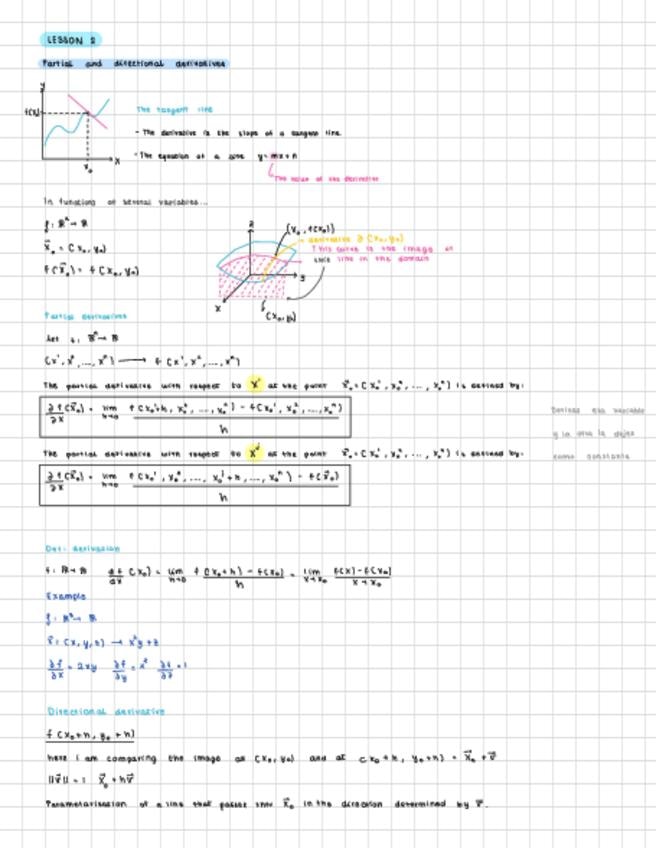 LESSON 2
Partial and directional derivatives
y
f(x₀)
x₀
x
The tangent line
- The derivative is the slope of a tangent line
- The equation of a line y = mx + n
The value of the derivative
In functions of several variables...
f: ℝ² → ℝ
x⃗₀ = (x₀, y₀)
f(x⃗₀) = f(x₀, y₀)
z
(x₀, f(x₀))
derivative ∂(x₀, y₀)
This curve is the image of
this line in the domain
y
x
(x₀, y₀)
Partial derivatives
Let f: ℝⁿ → ℝ
(x¹, x², ..., xⁿ) → f(x¹, x², ..., xⁿ)
The partial derivative with respect to x¹ at the point x⃗₀ = (x₀¹, x₀², ..., x₀ⁿ) is defined by:
∂f/∂x (x⃗₀) = lim h→0 f(x₀¹+h, x₀², ..., x₀ⁿ) - f(x₀¹, x₀², ..., x₀ⁿ) / h
The partial derivative with respect to xⁱ at the point x⃗₀ = (x₀¹, x₀², ..., x₀ⁿ) is defined by:
∂f/∂x (x⃗₀) = lim h→0 f(x₀¹, x₀², ..., x₀ⁱ+h, ..., x₀ⁿ) - f(x⃗₀) / h
Derivas esa variable
y la otra la dejas
como constante
Def: derivation
f: ℝ → ℝ df/dx (x₀) = lim h→0 f(x₀+h) - f(x₀) / h = lim x→x₀ f(x) - f(x₀) / x - x₀
Example
f: ℝ³ → ℝ
x⃗: (x, y, z) → x²y + z
∂f/∂x = 2xy ∂f/∂y = x² ∂f/∂z = 1
Directional derivative
f(x₀+h, y₀+h)
here I am comparing the image at (x₀, y₀) and at (x₀+h, y₀+h) = x⃗₀ + v⃗
||v⃗|| = 1 x⃗₀ + hv⃗
Parametarisation of a line that passes thru x⃗₀ in the direction determined by v⃗.